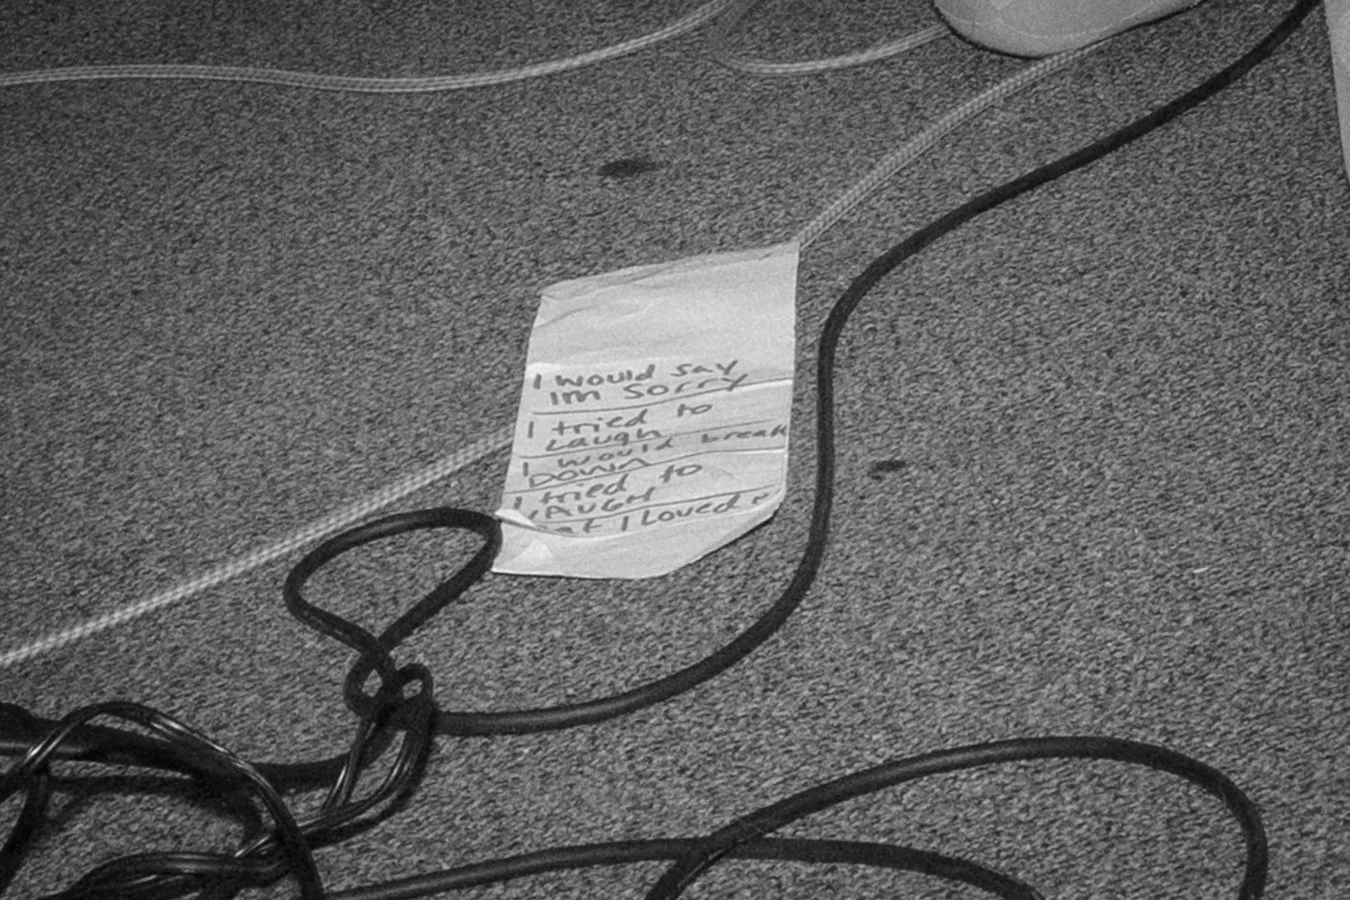 I would say
Im Sorry
I tried to
Laugh
I would break
DOWN
I tried to
LAUGH
at I Loved